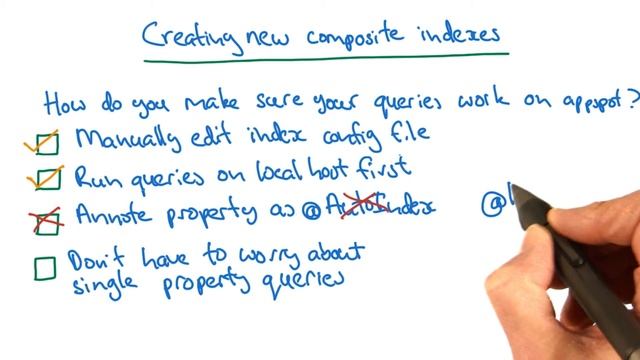 Creating new composite indexes
How do you make sure your queries work on appspot?
Manually edit index config file
Run queries on localhost first
Annote property as @AutoIndex @
Don't have to worry about
single property queries